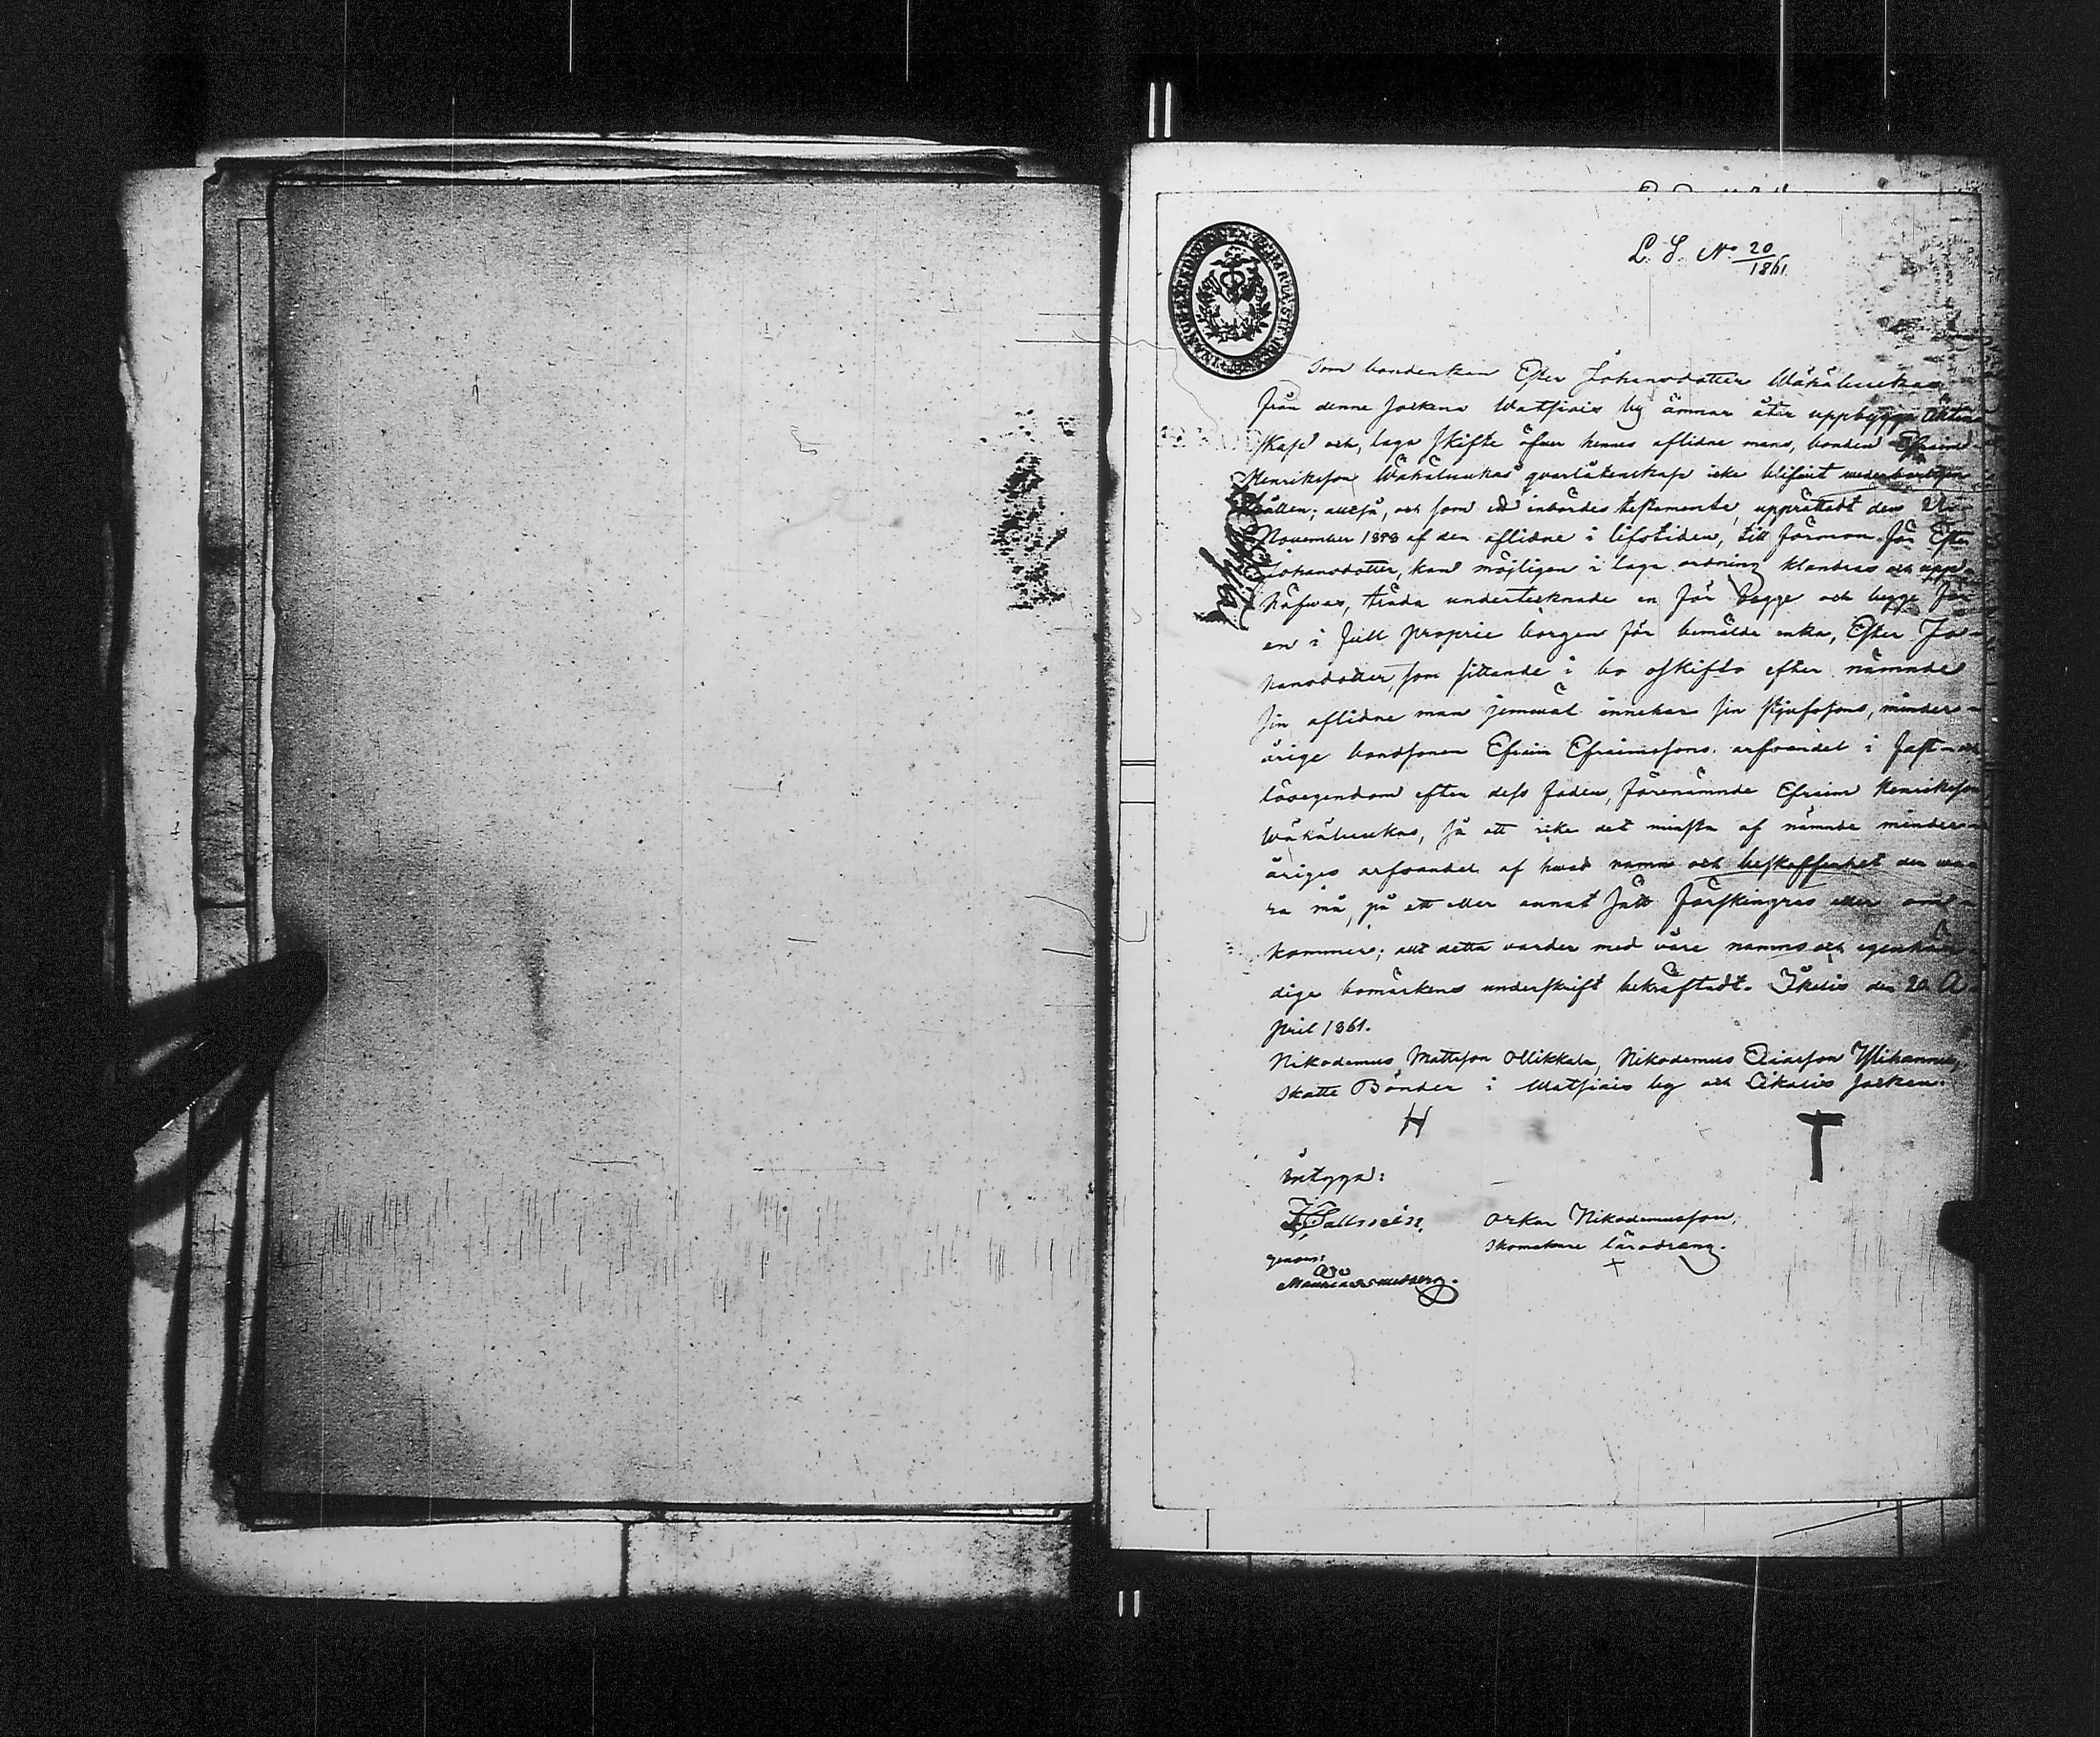 L. S. No 20/1861
Som bondenkan Ester Johansdotter Wähäluukas
från denne Sockens Watsiais by ämnar åter uppbygga äkten-
skap och laga skifte öfver hennes aflidne mans, bonden Efraim
Henriksson Wähäluukas qvarlåtenskap icke blifvit
hållen; alltså, och som ett inbördes testamente, upprättadt den
November 1858 af den aflidne i lifstiden, till förmon för Ester
Johansdotter, kan möjligen i laga ordning klandras och upp-
häfvas, träda undertecknade en för begge och begge för
en i full proprie borgen för bemälde enka, Ester Jo-
hansdotter, som sittande i bo oskifto efter nämnde
sin aflidne man jemväl innehar sin styfsons, minder-
årige bondsonen Efraim Efraimssons arfvandel i fast- och
lösegendom efter dess fader, förenämnde Efraim Henriksson
Wähäluukas, så att icke det minsta af nämnde minder-
åriges arfvandel af hvad namn och beskaffenhet den va-
ra må, på ett eller annat sätt förskingras eller
kommer; allt detta varder med våre namns och egenhän-
dige bomärkens underskrift bekräftadt. Ikalis den 20 A-
pril 1861.
Nikodemus Mattsson Ollikkala, Nikodemus Eliasson Ylihannu,
skatte Bönder i Watsiais by och Ikalis Socken.
H T
intyga:
Oskar Nikodemusson,
skomakare lärodräng.
genom: